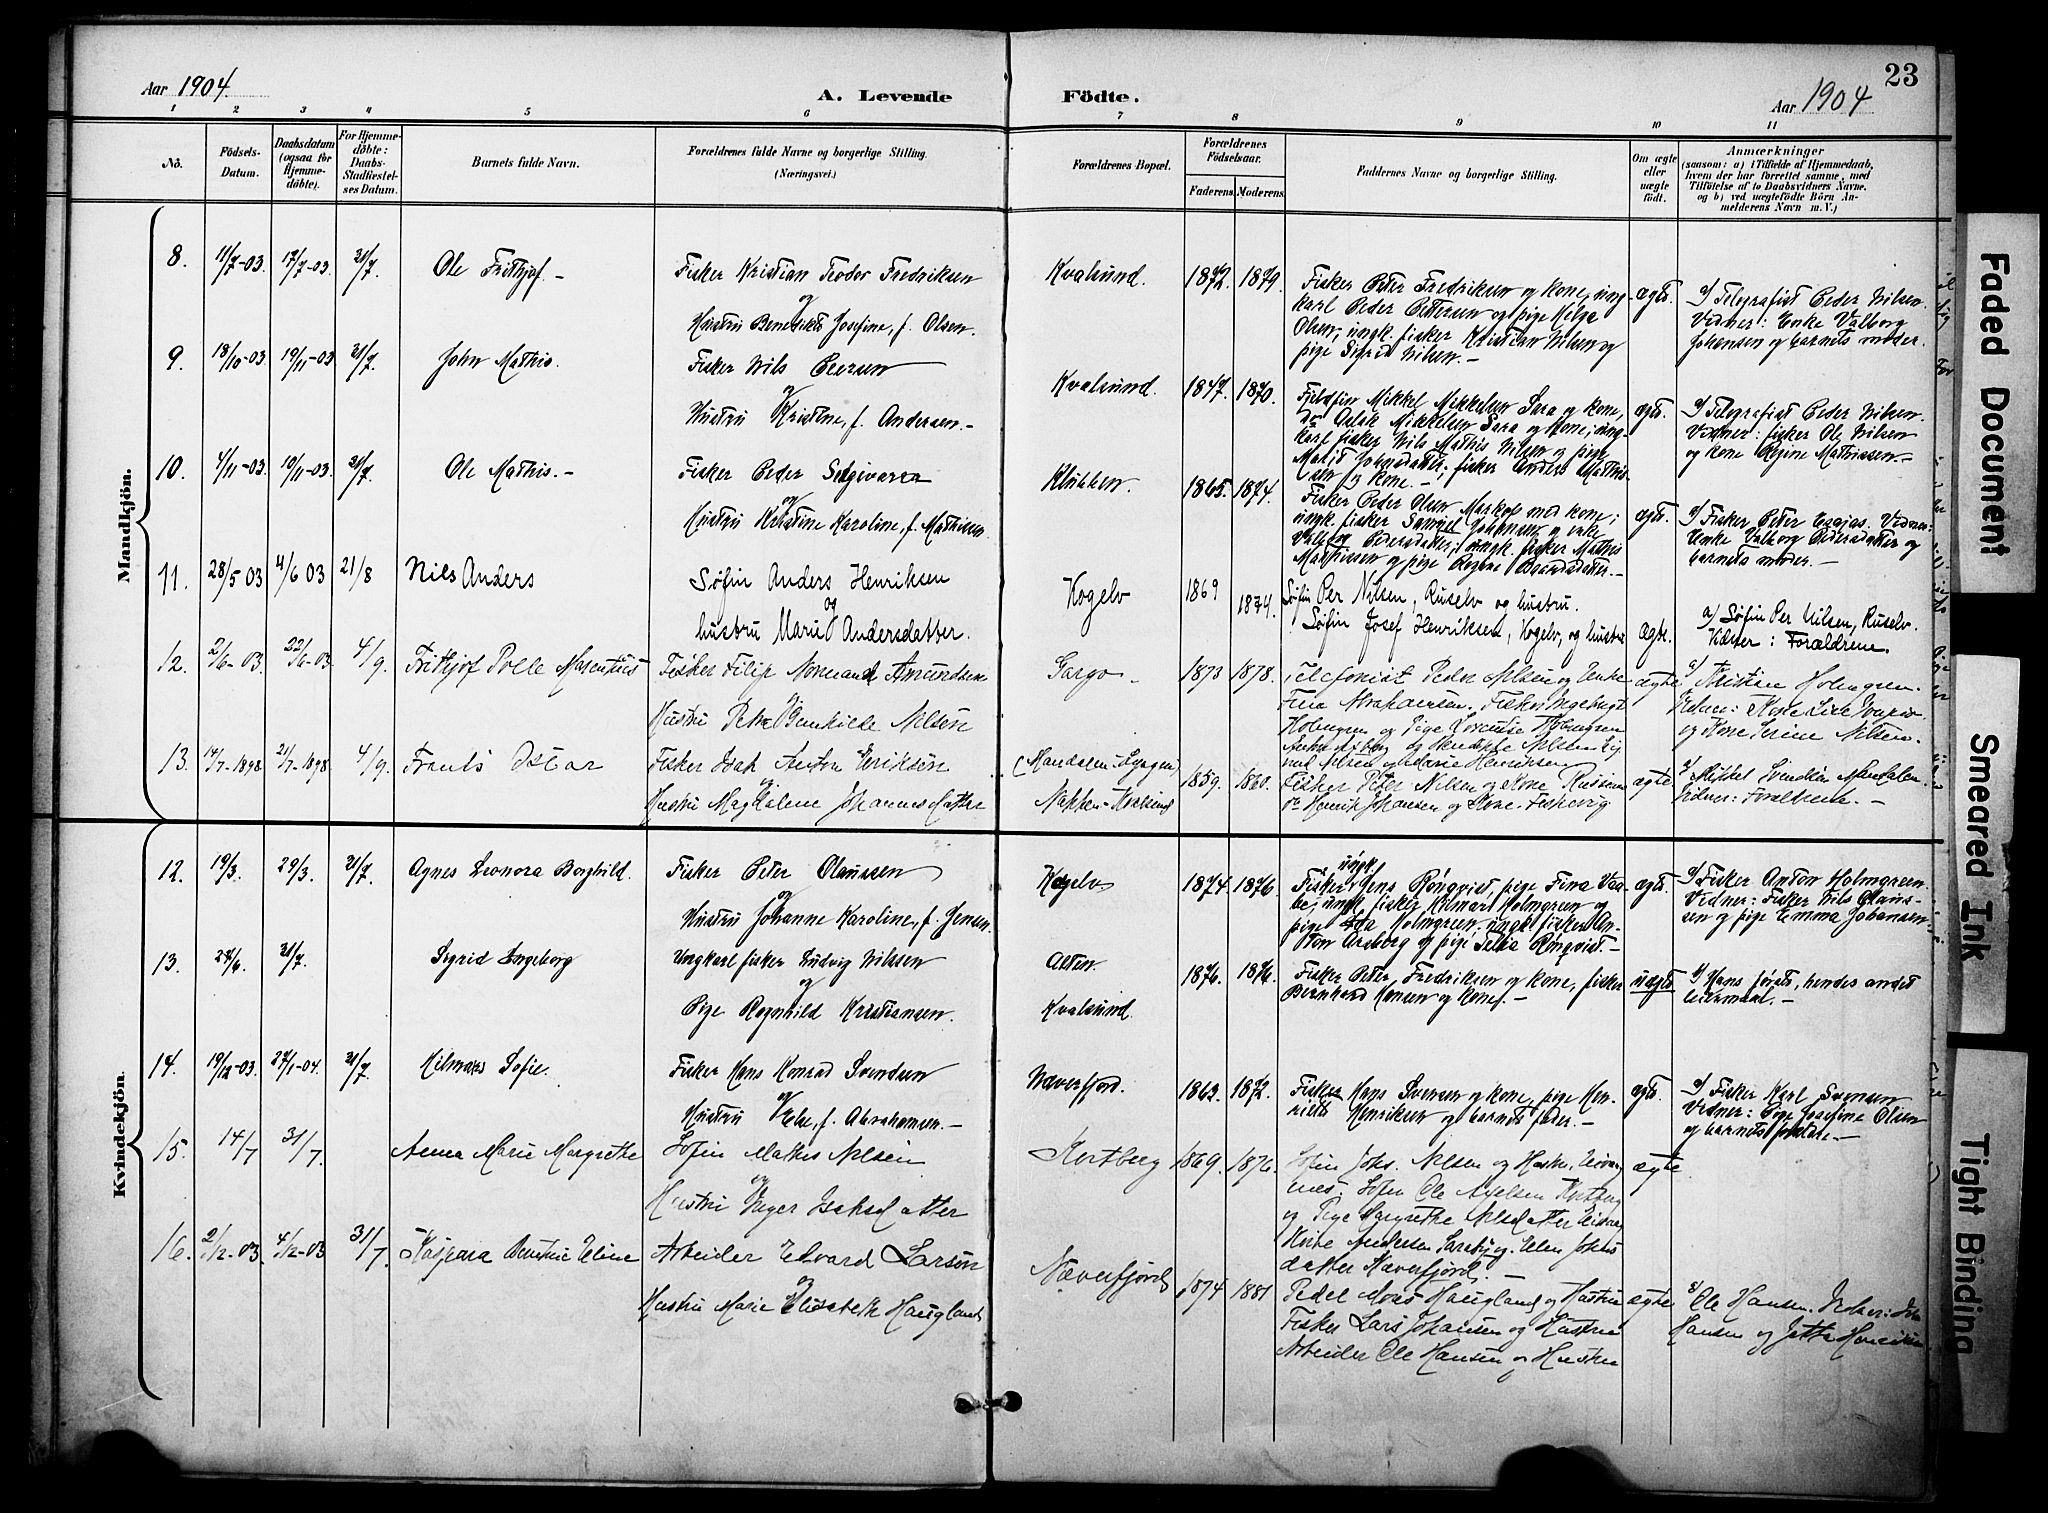 Aar 1904.
A. Levende Födte.
Aar 1904
23
1 2 3 4 5 6 7 8 9 10 11
No.
Födsels-Datum.
Daabsdatum (ogsaa for Hjemme-döbte).
For Hjemme-döbte: Daabs-Stadfæstel-ses Datum.
Barnets fulde Navn.
Forældrenes fulde Navne og borgerlige Stilling. (Næringsvei.)
Forældrenes Bopæl.
Forældrenes Födselsaar.
Faderens. Moderens.
Faddernes Navne og borgerlige Stilling.
Om ægte eller uægte født.
Anmærkninger
(saasom: a) i Tilfælde af Hjemmedaab, hvem der har forrettet samme, med Tilföielse af to Daabsvidners Navne, og b) ved uægtefödte Börn An-melderens Navn m. V.)
Mandkjön.
8. 11/7-03. 17/7-03. 31/7. Ole Frithjof.-
Fisker Kristian Teodor Fredriksen
og
Hustru Benedikte Josefine, f. Olsen.
Kvalsund. 1872. 1879.
Fisker Peter Fredriksen og kone, ung-
karl Peder Pettersen og pige Helga
Olsen, ungk. fisker Kristian Nilsen og
pige Sigrid Nilsen.-
ægte.
a) Telegrafist Peder Nilsen.
Vidner: Enke Valborg
Johansen og barnets moder.
9. 18/10-03 19/11-03 31/7. John Mathis.
Fisker Nils Peersen
og
Hustru Kristine, f. Andersen.-
Kvalsund. 1847. 1870.
Mikkel Mikkelsen Sara og kone,
Do Aslak Mikkelsen Sara og kone, ung-
karl fisker Nils Mathis Nilsen og pige
Marit Johnsdatter, fisker Anders Mathis-
sen og kone.-
ægte.
a) Telegrafist Peder Nilsen.
Vidner: fisker Ole Nilsen
og kone Regine Mathissen.-
10. 4/11-03. 19/11-03. 31/7. Ole Mathis.-
Fisker Peder
og
Hustru Kristine Karoline, f. Mathisen.
Klubben. 1865. 1874.
Fisker Peder Olsen med kone;
ungk. fisker Samuel Johansen og enke
Valborg Pedersdatter; ungk. fisker Mathis
Mathissen og pige
ægte.
a) Fisker Peter Esajas. Vidner:
Enke Valborg Pedersdatter og
barnets moder.-
11. 28/5 03 4/6 03 21/8 Nils Anders
Søfin Anders Henriksen
og
hustru Marit Andersdatter.
Kogelv 1869 1874.
Søfin Per Nilsen, Ruselv og hustru.
Søfin Josef Henriksen, Kogelv, og hustru
ægte.
a) Søfin Per Nilsen, Ruselv.
Vidner: Forældrene.
12. 2/6-03. 22/6-03. 4/9. Frithjof Polle
Fisker Filip Normand Amundsen
og
Hustru Petra Nilsen
Gargo- 1873 1878.
Telefonist Peder Nilsen og Enke
Fina Abrahamsen. Fisker Ingebrigt
Holmgren og Pige Holmgren
ægte
a) Kristian Holmgren.
og Kone Nilsen.
13. 14/7-1898 21/7-1898 4/9. Frants Oskar
Fisker Isak Anton Eriksen
og
Hustru Magdalene Johannesdatter
(Mandalen-Lyngen)
Nakken-Kvalsund 1859. 1860.
Fisker Peter Nilsen og Kone
Do Henrik Johansen og Kone.
ægte.
a) Mikkel Svendsen Mandalen
Vidner: Forældrene.-
Kvindekjön.
12. 19/3. 29/3. 31/7. Agnes Leonora Borghild.
Fisker Peter Olaussen
og
Hustru Johanne Karoline, f. Jensen.
Kogelv 1874. 1876.
ungk.
Fisker Jens Rönqvist, pige Fina Vaa-
be, ungk. fisker Hilmart Holmgreen og
pige Holmgreen, ungk. fisker An-
ton og pige Rönqvist.-
ægte.
a) Fisker Anton Holmgreen.
Vidner: Fisker Nils Olaus-
sen og pige Emma Johansen.
13. 27/6. 31/7. Sigrid Ingeborg
Ungkarl fisker Ludvig Nilssen
og
Pige Ragnhild Kristiansen.
Alten.
Kvalsund. 1876. 1876.
Fisker Peter Fredriksen og kone, fisker
Bernhard Hansen og kone.-
uægte
b) Hans første, hendes andet
leiermaal.-
14. 19/12-03. 27/1-04. 31/7. Sofie.
Fisker Hans Konrad Svendsen
og
Hustru f. Abrahamsen.-
Næverfjord. 1863. 1872.
Fisker Hans Svensen og kone, pige Hen-
riette Henriksen og barnets fader.-
ægte.
a) Fisker Karl Svensen
Vidner: Pige Josefine Olsen
og barnets
15. 14/7 31/7. Anna Marie Margrethe
Søfin Mathis Nilsen
og
Hustru Inger Isaksdatter
Kortberg 1869. 1876.
Søfin Johs. Nilsen og Hustru,
Søfin Ole
og Pige Margrethe Nilsdatter
Andersen
datter Næverfjord.-
ægte
16. 2/12-03. 4/12-03 31/7. Kaspara Eline
Arbeider Edvard Larsen
og
Hustru Marie Elisabeth Haugland
Næverfjord 1874 1881
Mons Haugland og Hustru
Fisker Lars Johansen og Hustru
Arbeider Ole Hansen og Hustru
ægte
a) Ole Hansen. Vidner:
Hansen og
Faded Document
Smeared Ink
Tight Binding